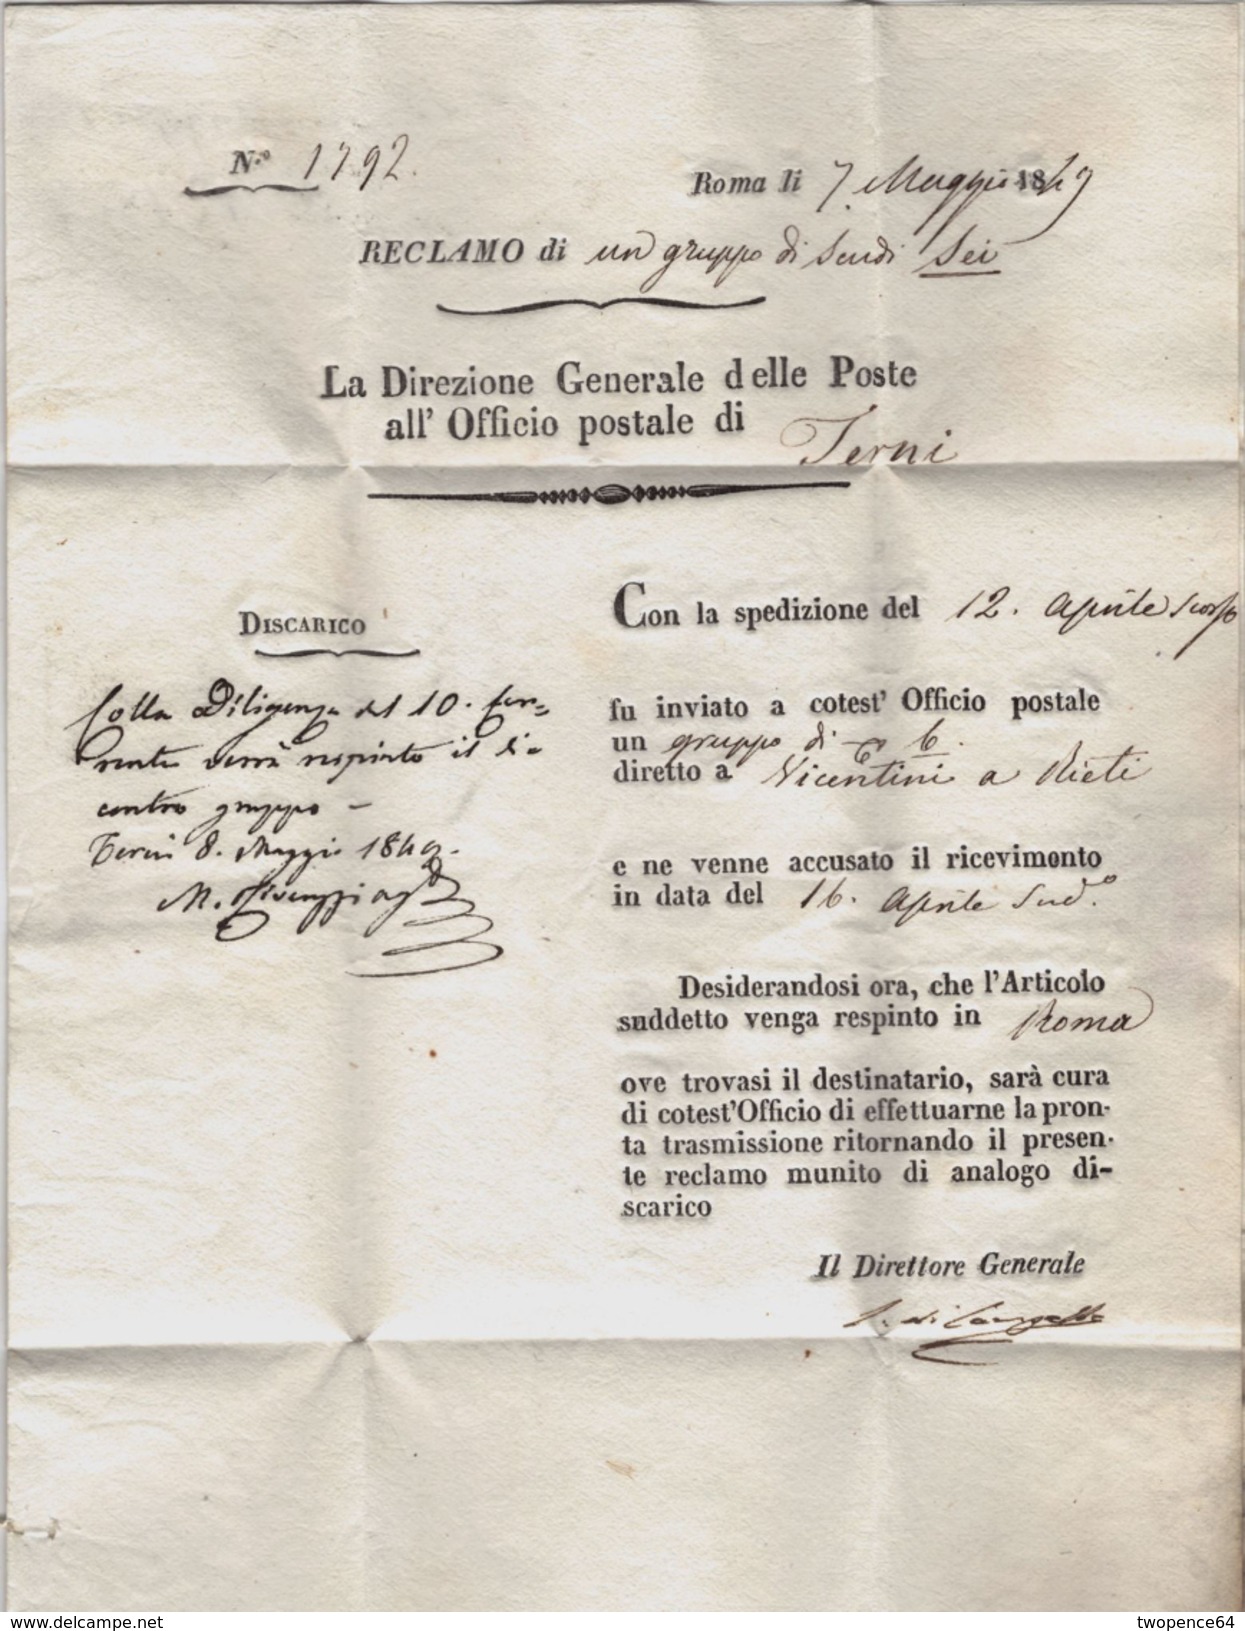 N.o 1792.
Roma li 7. Maggio 1849
RECLAMO di un gruppo di Scudi Sei
La Direzione Generale delle Poste
all' Officio postale di Terni
DISCARICO
Colla Diligenza del 10. Cor=
rente verrà respinto il di
contro gruppo –
Terni 8. Maggio 1849.
M.
Con la spedizione del 12. Aprile scorso
fu inviato a cotest' Officio postale
un gruppo di 6.
diretto a Vicentini a Rieti
e ne venne accusato il ricevimento
in data del 16. Aprile Sud.o
Desiderandosi ora, che l'Articolo
suddetto venga respinto in Roma
ove trovasi il destinatario, sarà cura
di cotest'Officio di effettuarne la pron-
ta trasmissione ritornando il presen-
te reclamo munito di analogo di-
scarico
Il Direttore Generale
delcampe.net
twopence64